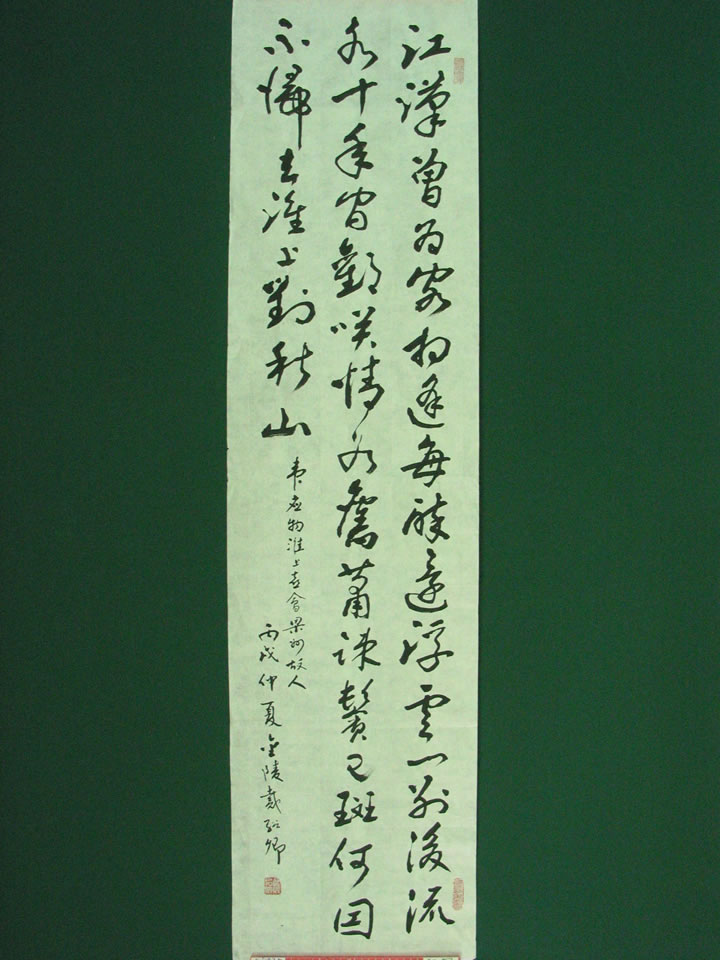 江漢曾為客相逢每醉還浮雲一別後流
水十年間歡咲情如舊蕭疎鬢已斑何因
不歸去淮上對秋山
韦应物淮上喜會梁州故人
丙戌仲夏金陵戴卿